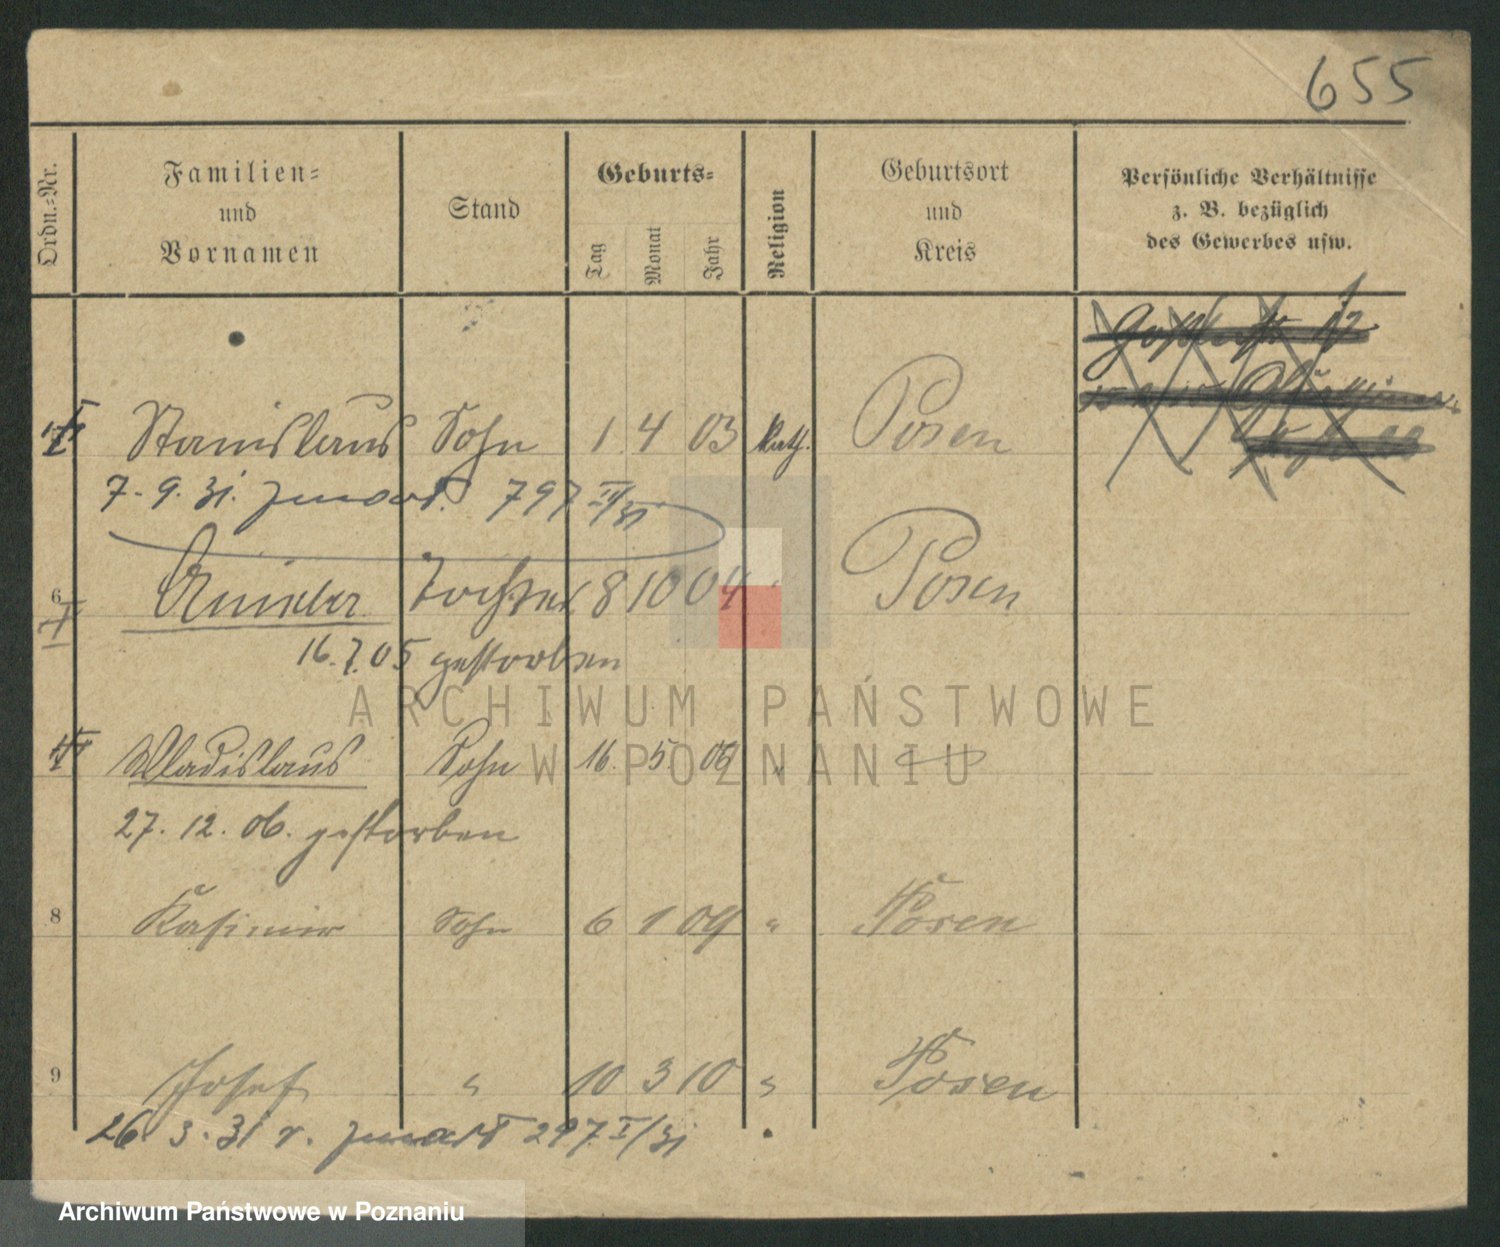 655
Ordn.=Nr.
Familien=
und
Vornamen
Stand
Geburts=
Tag
Monat
Jahr
Religion
Geburtsort
und
Kreis
Persönliche Verhältnisse
z. B. bezüglich
des Gewerbes usw.
Stanislaus Sohn 1 4 03 Kath. Posen
7. 9. 31. 797 II/31
6 Tochter 8 10 04 " Posen
16. 7. 05 gestorben
Wladislaus Sohn 16 5 06 "
27. 12. 06. gestorben
8 Kasimir Sohn 6 1 09 " Posen
9 Josef " 10 3 10 " Posen
26. 3. 31 v. 297 I/31
ARCHIWUM PAŃSTWOWE
W POZNANIU
Archiwum Państwowe w Poznaniu